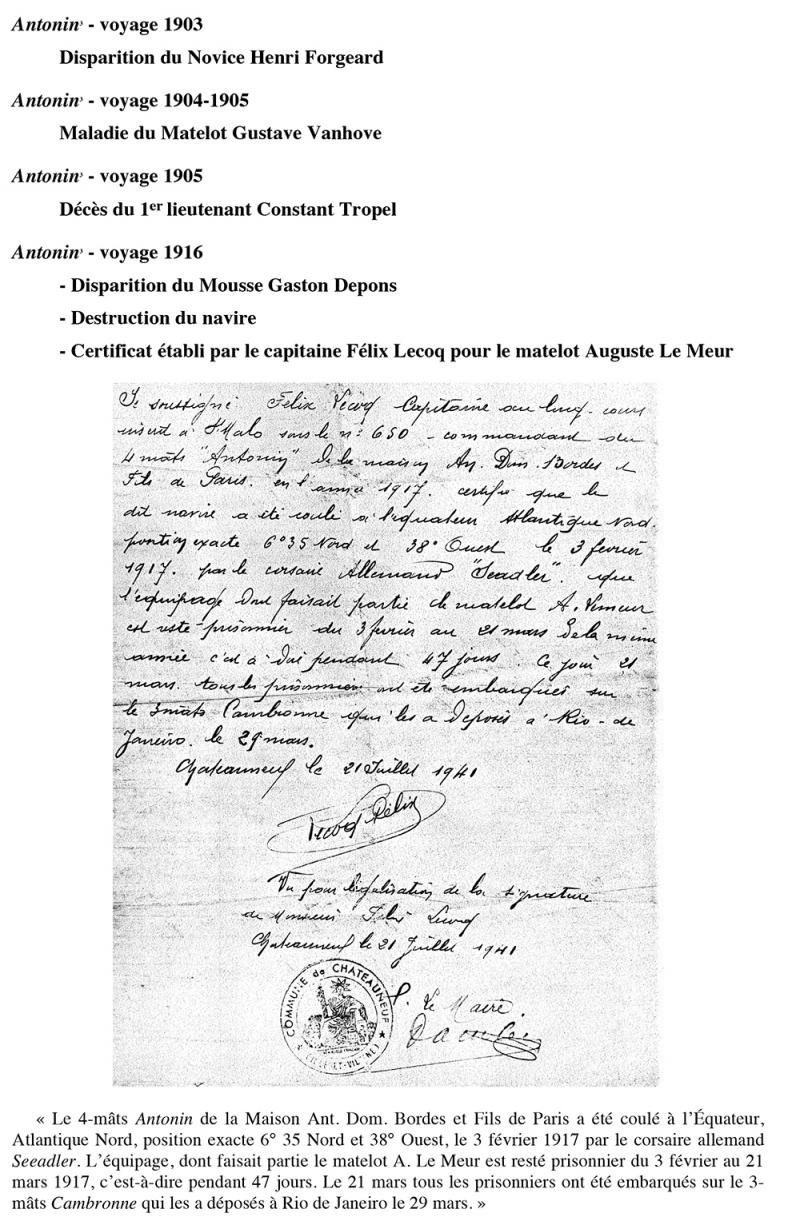 Antonin, - voyage 1903
Disparition du Novice Henri Forgeard
Antonin, - voyage 1904-1905
Maladie du Matelot Gustave Vanhove
Antonin, - voyage 1905
Décès du 1er lieutenant Constant Tropel
Antonin, - voyage 1916
- Disparition du Mousse Gaston Depons
- Destruction du navire
- Certificat établi par le capitaine Félix Lecoq pour le matelot Auguste Le Meur
Je soussigné Félix Lecoq Capitaine au long-cours
inscrit à St Malo sous le n° 650 - commandant du
4 mâts "Antonin" de la maison An. Dom. Bordes et
Fils de Paris. en l'année 1917. certifie que le
dit navire a été coulé à l'équateur Atlantique Nord.
position exacte 6°35 Nord et 38° Ouest le 3 février
1917. par le corsaire Allemand "Seadler". que
l'équipage dont faisait partie le matelot A. Lemeur
est resté prisonnier du 3 février au 21 mars de la même
année c'est à dire pendant 47 jours. Ce jour 21
mars. tous les prisonniers ont été embarqués sur
le 3 mats Cambronne qui les a déposés à Rio-de
Janeiro. le 29 mars.
Chateauneuf le 21 Juillet 1941
Lecoq Félix
Vu pour légalisation de la signature
de Monsieur Félix Lecoq
Chateauneuf le 21 Juillet 1941
COMMUNE de CHATEAUNEUF
(ILLE-ET-VILNE)
P. Le Maire.
« Le 4-mâts Antonin de la Maison Ant. Dom. Bordes et Fils de Paris a été coulé à l'Équateur,
Atlantique Nord, position exacte 6° 35 Nord et 38° Ouest, le 3 février 1917 par le corsaire allemand
Seeadler. L'équipage, dont faisait partie le matelot A. Le Meur est resté prisonnier du 3 février au 21
mars 1917, c'est-à-dire pendant 47 jours. Le 21 mars tous les prisonniers ont été embarqués sur le 3-
mâts Cambronne qui les a déposés à Rio de Janeiro le 29 mars. »